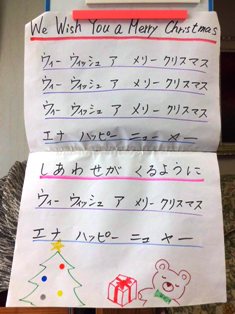 We Wish You a Merry Christmas
ウィー ウィッシュ ア メリー クリスマス
ウィー ウィッシュ ア メリー クリスマス
ウィー ウィッシュ ア メリー クリスマス
エナ ハッピー ニュー ヤー
しあわせが くるように
ウィー ウィッシュ ア メリー クリスマス
エナ ハッピー ニュ ヤー